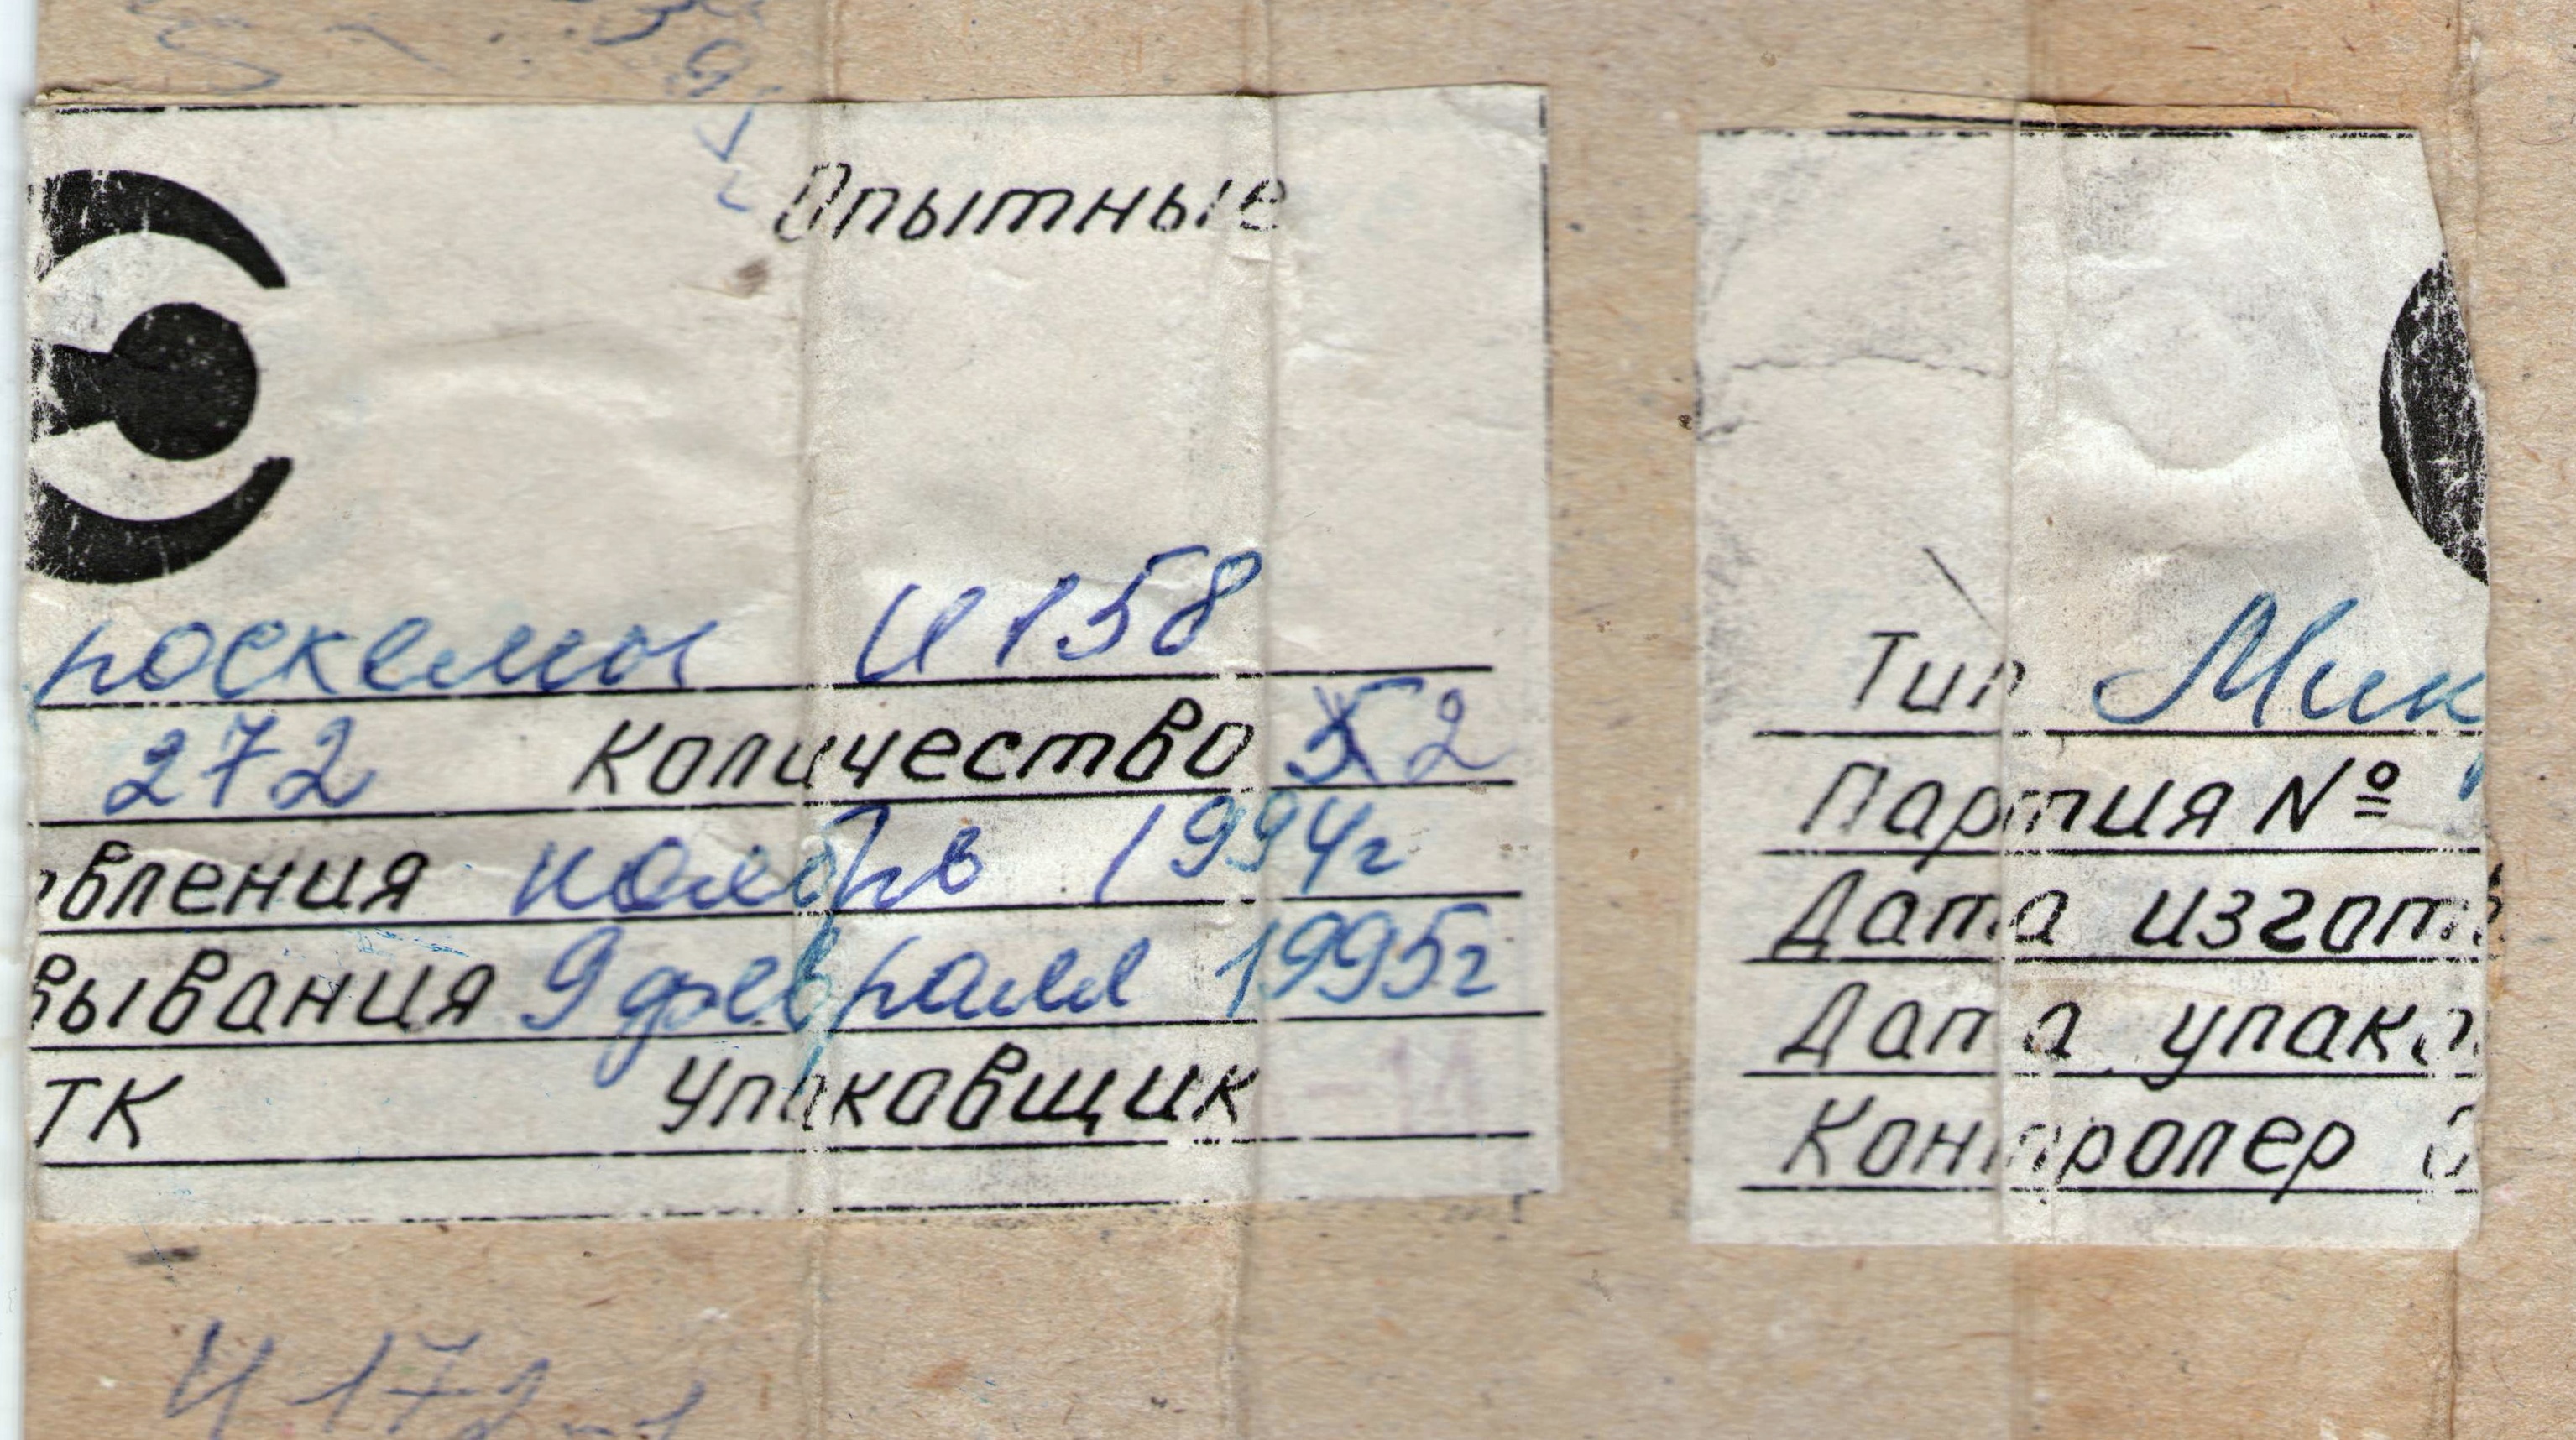 Опытные
роскемы И158
272 Количество 52
вления ноябрь 1994г
вывания 9 февраля 1995г
ТК Упаковщик
Тип Мик
Партия №
Дата изгот
Дата упако
Контролер О
И 172